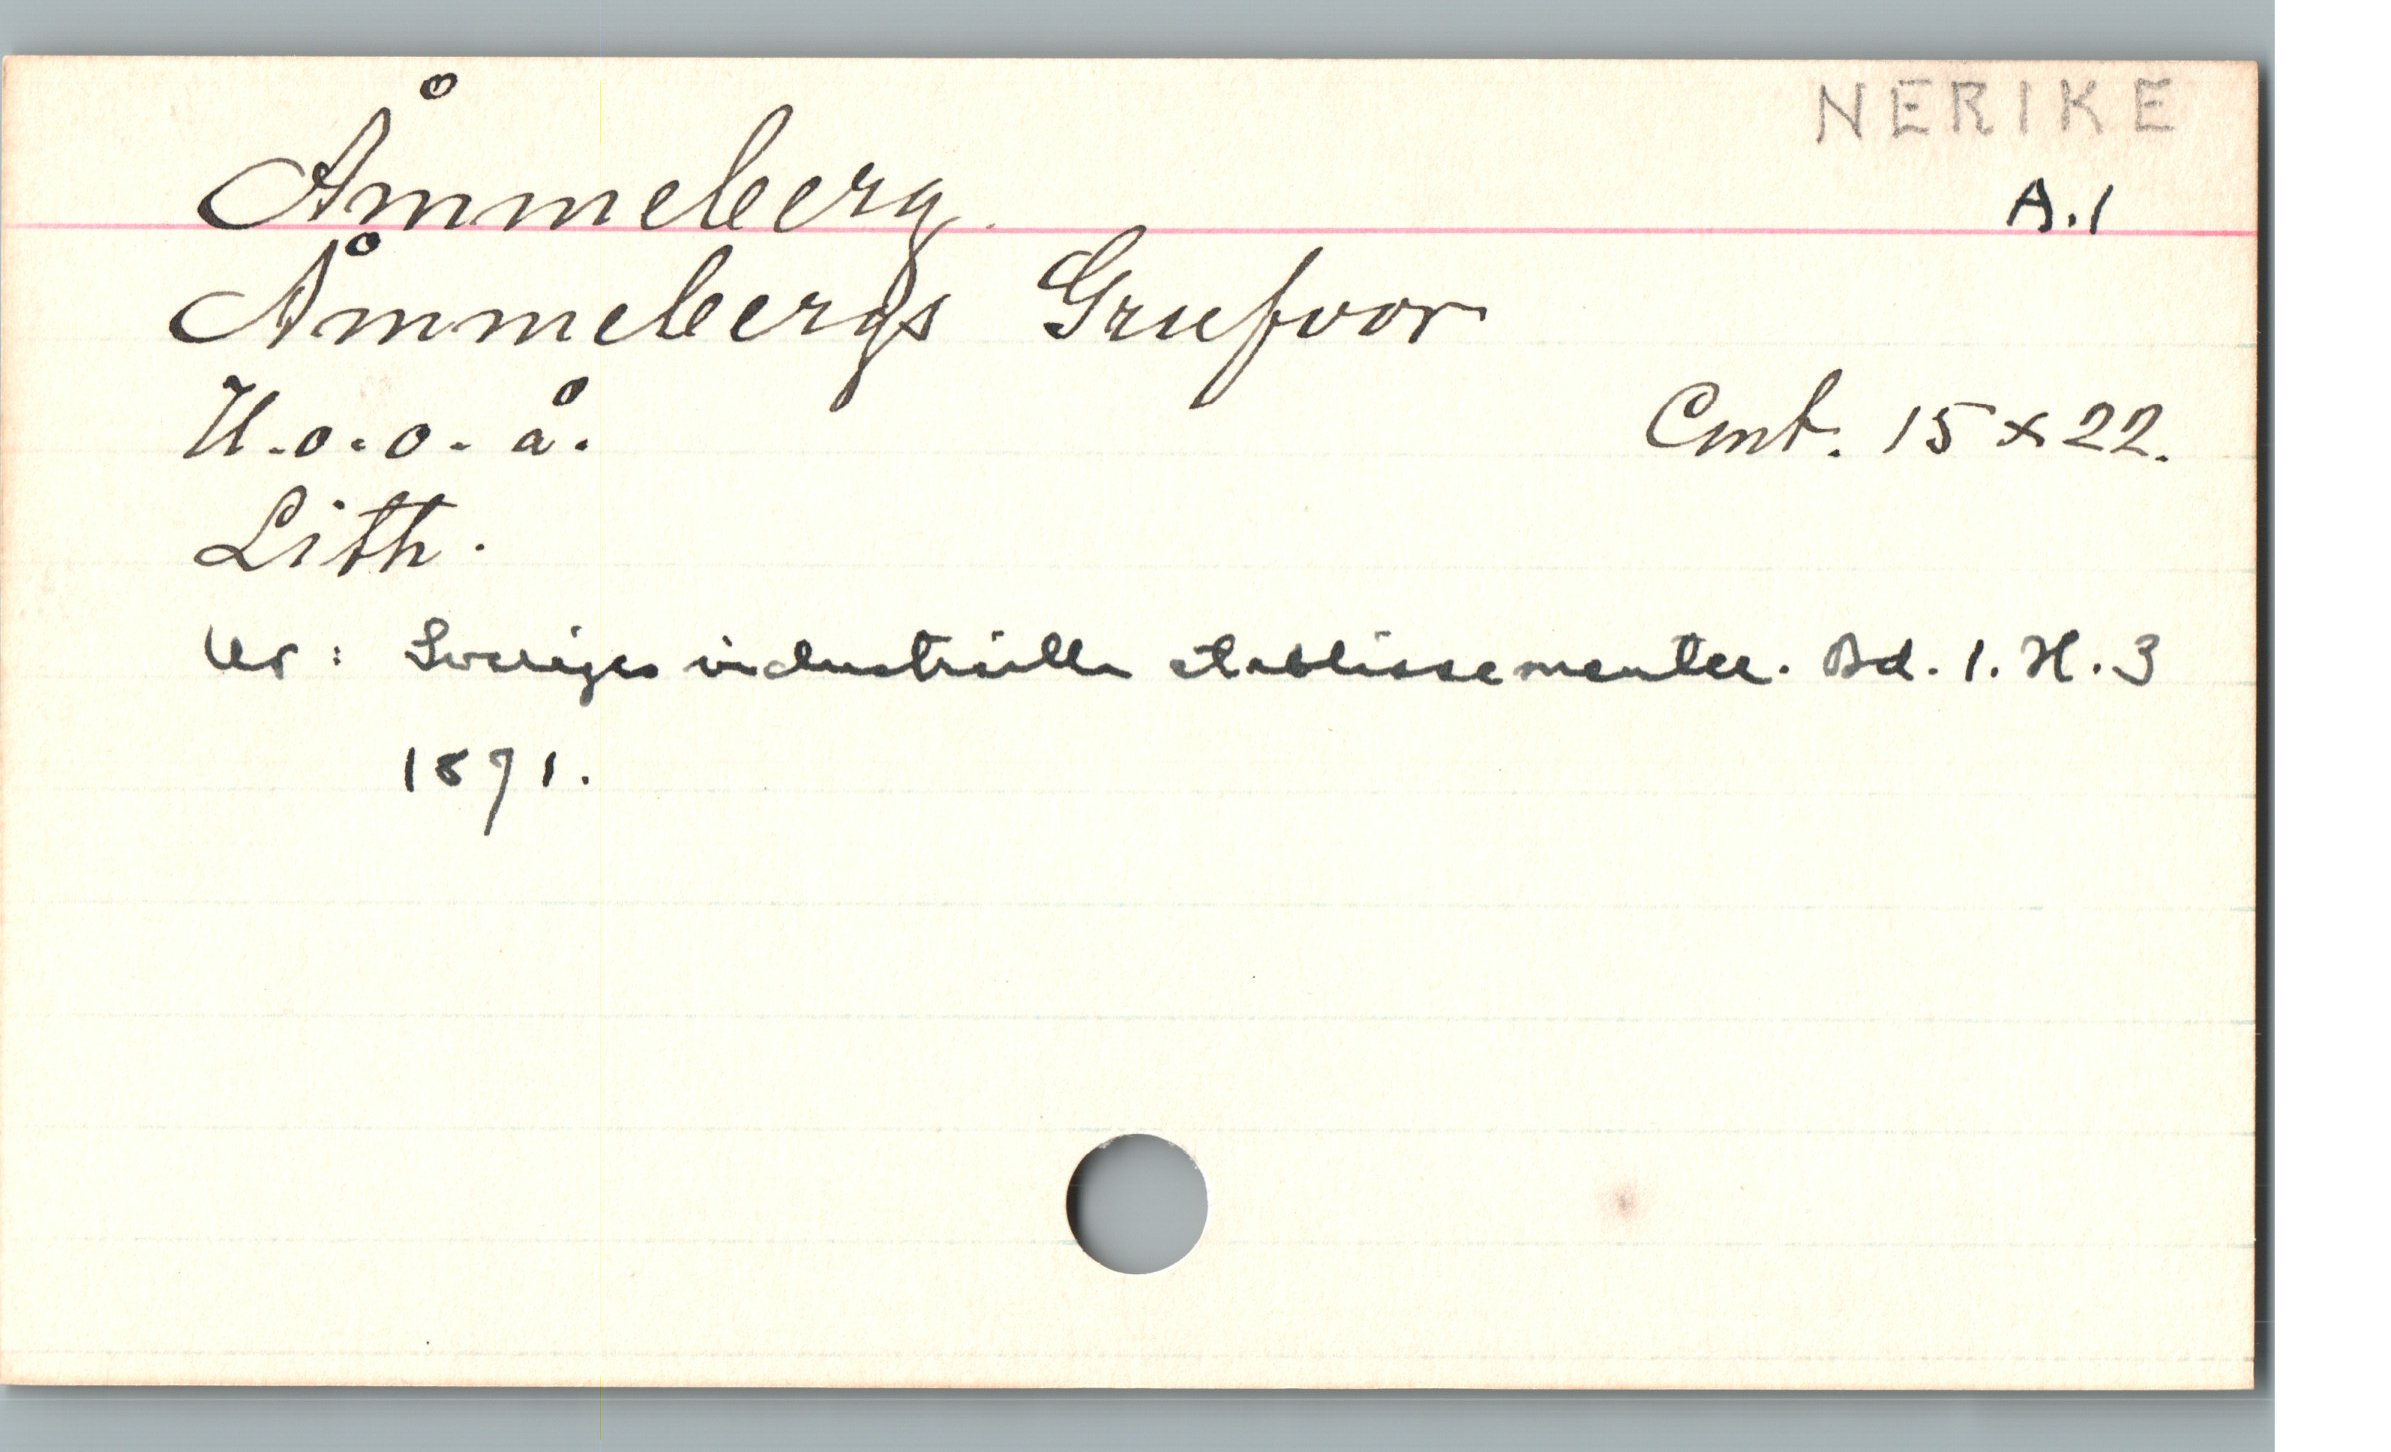 NERIKE
Åmmeberg.
A.1
Åmmebergs Grufvor
U.o.o.å.
Cmt. 15 x 22.
Lith.
Ur: Sveriges industriella etablissementer. Bd. 1. H. 3
1871.